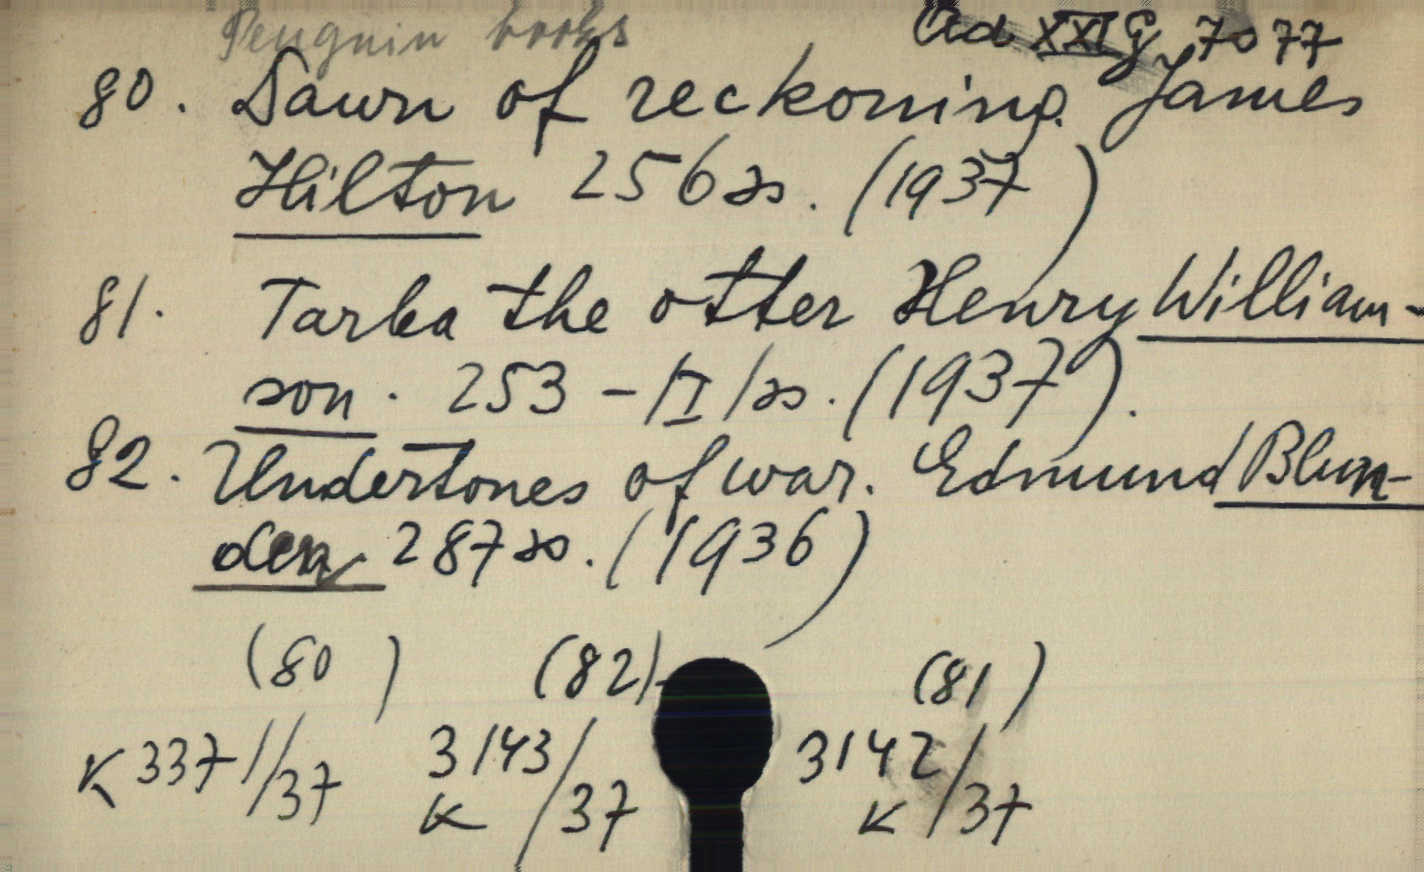 Penguin books
Ad XXI G 7077
80. Dawn of reckoning. James
Hilton 256 s. (1937)
81. Tarka the otter Henry William-
son. 253 - /I/ s. (1937).
82. Undertones of war. Edmund Blun-
den 287 s. (1936)
(80) (82) (81)
K 3371/37 3143/37 3142/37
K K